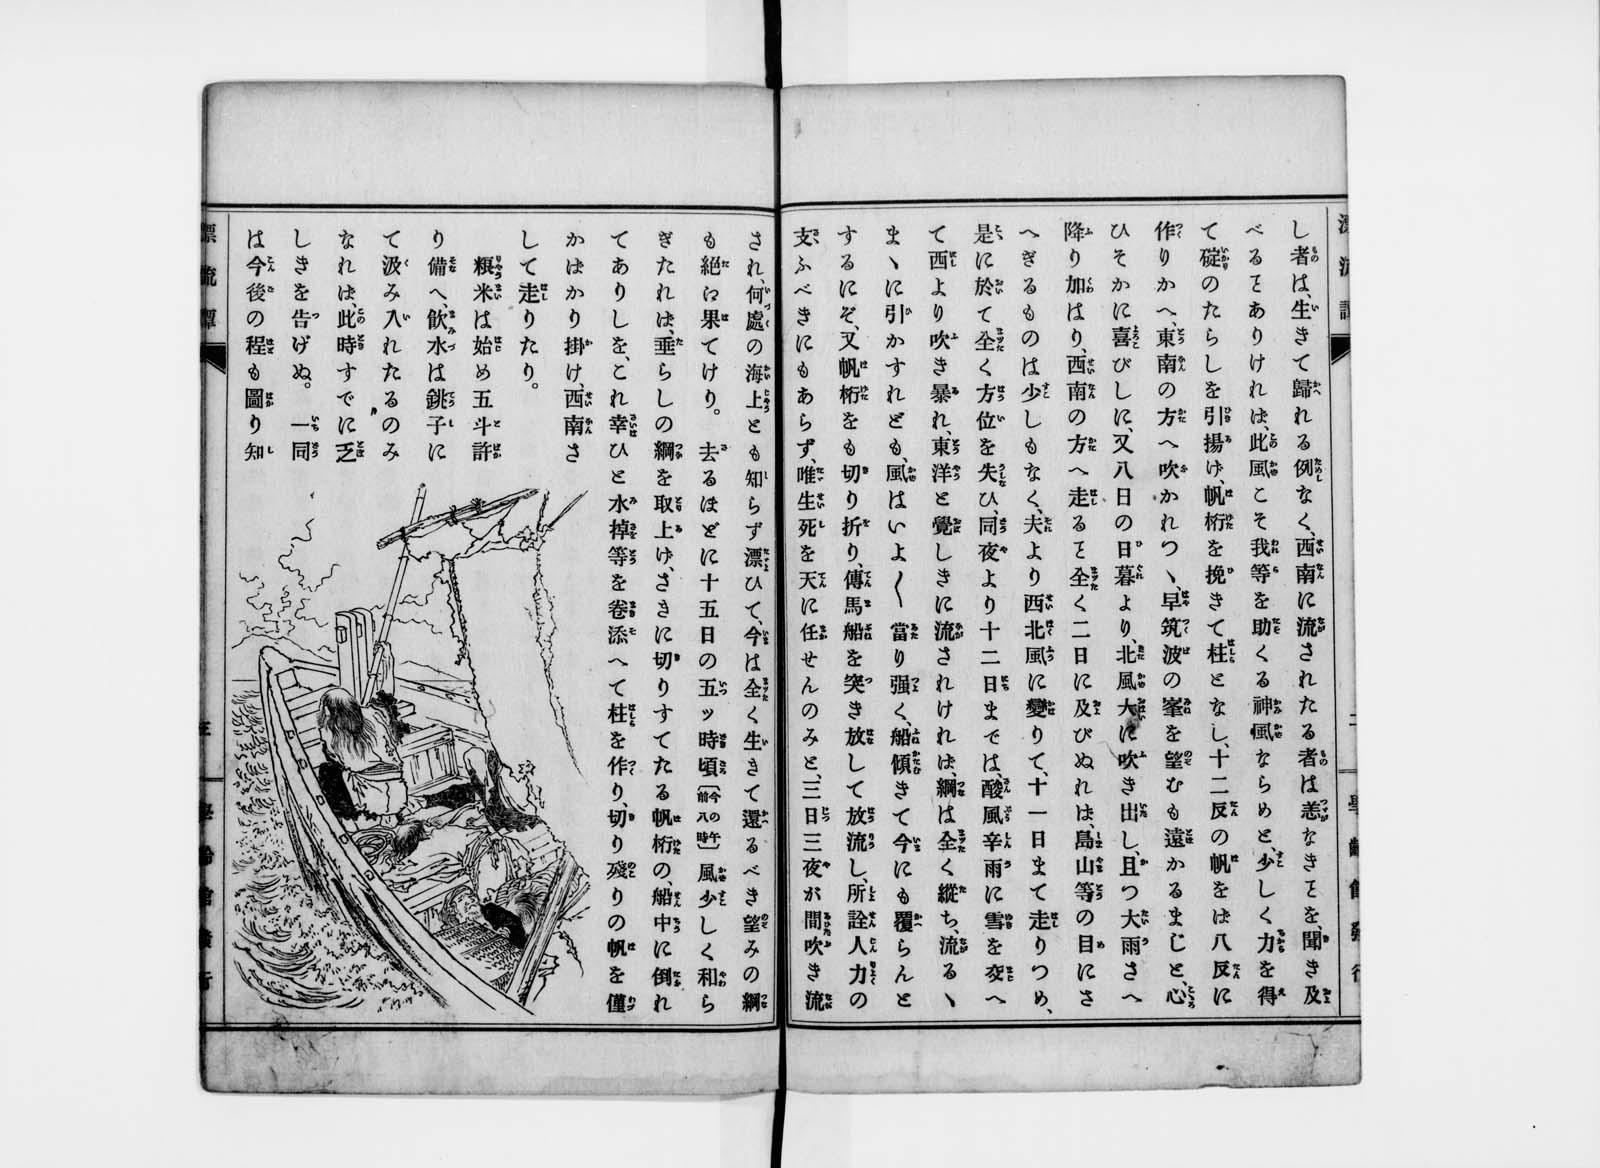 し者は、生きて歸れる例なく、西南に流されたる者は恙なきヿを、聞き及
べるヿありければ、此風こそ我等を助くる神風ならめと、少しく力を得
て碇のたらしを引揚げ、帆桁を挽きて柱となし、十二反の帆をば八反に
作りかへ、東南の方へ吹かれつゝ、早筑波の峯を望むも遠かるまじと、心
ひそかに喜びしに、又八日の日暮より、北風大に吹き出し、且つ大雨さへ
降り加はり、西南の方へ走るヿ全く二日に及びぬれは、島山等の目にさ
へぎるものは少しもなく、夫より西北風に變りて、十一日まて走りつめ、
是に於て全く方位を失ひ、同夜より十二日までは、酸風辛雨に雪を交へ
て西より吹き暴れ、東洋と覺しきに流されければ、綱は全く縱ち、流るゝ
まゝに引かすれども、風はいよ〱當り强く、船傾きて今にも覆らんと
するにぞ、又帆桁をも切り折り、傳馬船を突き放して放流し、所詮人力の
支ふべきにもあらず、唯生死を天に任せんのみと、三日三夜が間吹き流
され、何處の海上とも知らず漂ひて、今は全く生きて還るべき望みの綱
も絕え果てけり。去るほどに十五日の五ッ時頃〔今の午前八時〕風少しく和ら
ぎたれば、垂らしの綱を取上げ、さきに切りすてたる帆桁の、船中に倒れ
てありしを、これ幸ひと水棹等を卷添へて柱を作り、切り殘りの帆を僅
かばかり掛け、西南さ
して走りたり。
糧米は始め五斗許
り備へ、飮水は銚子に
て汲み入れたるのみ
なれば、此時すでに乏
しきを告げぬ。一同
は今後の程も圖り知
漂流譚
二
學齡館發行
漂流譚
三
學齡館發行